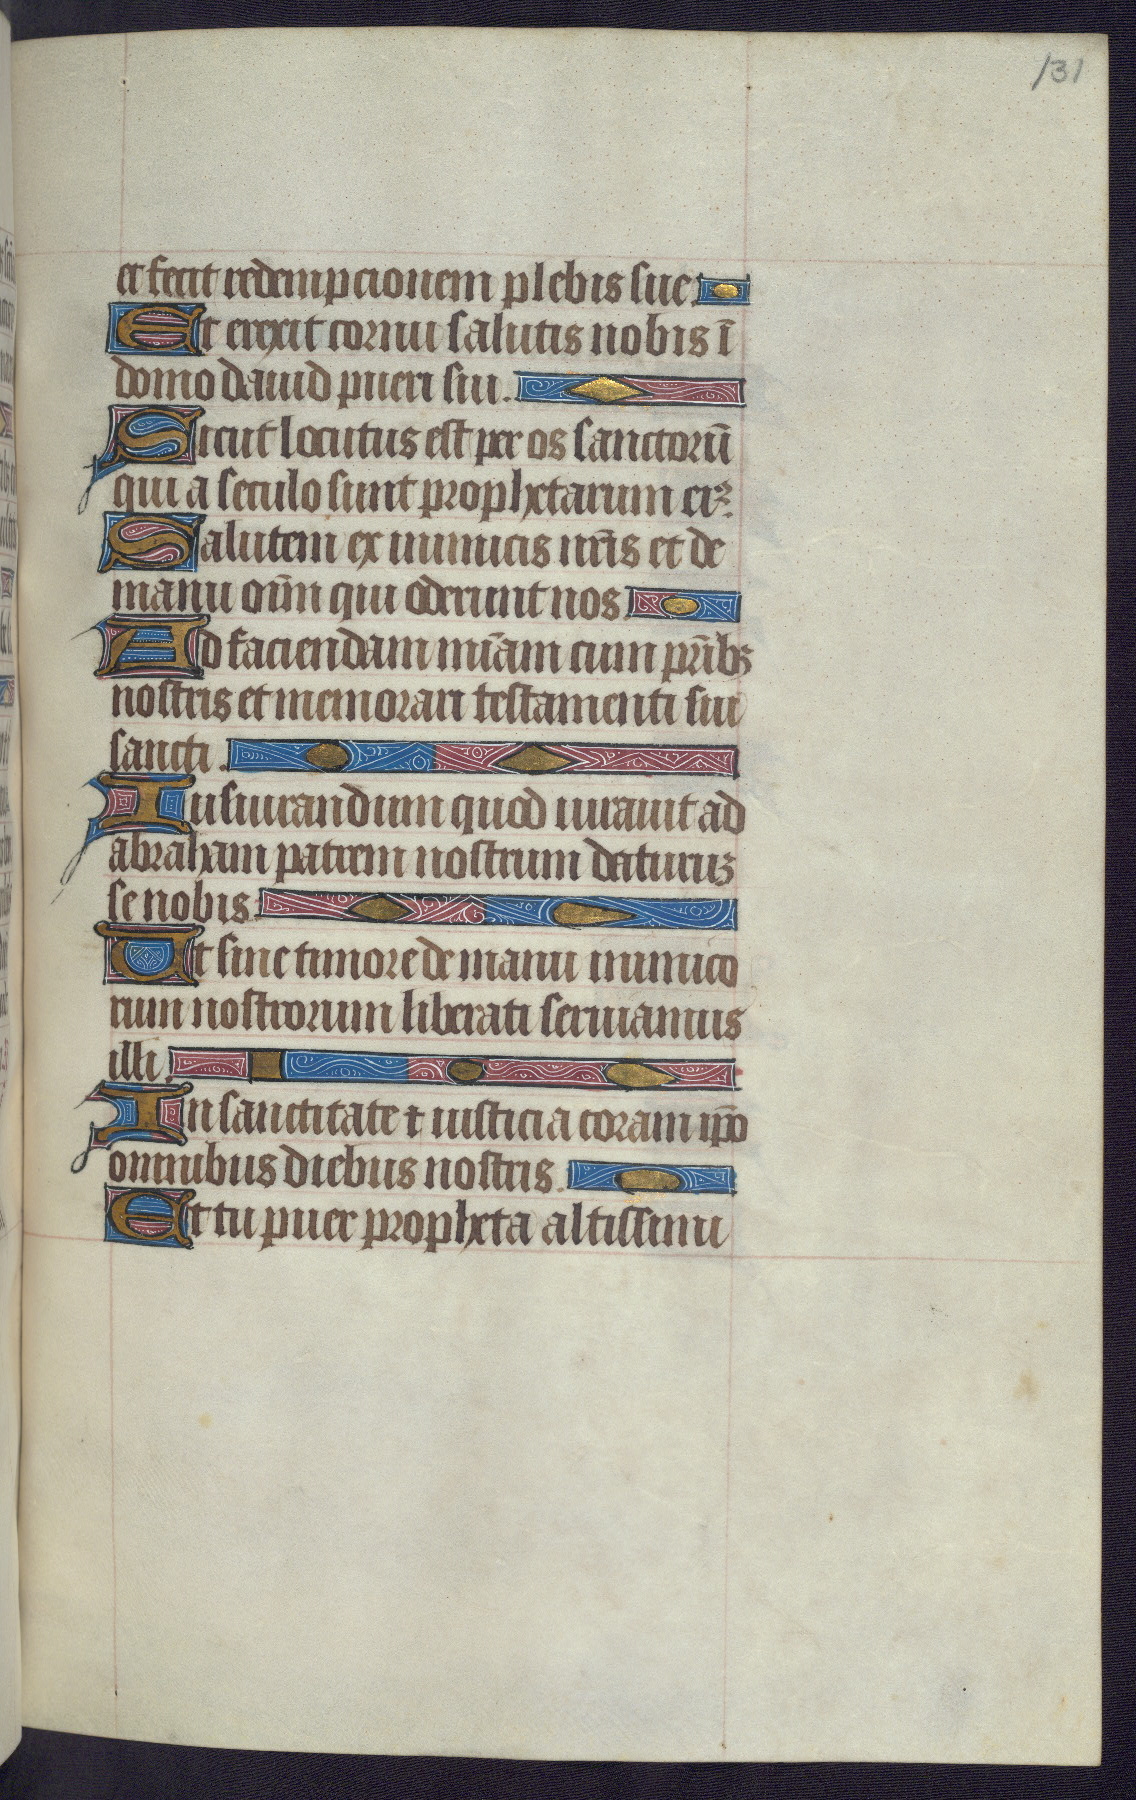 131
et fecit redempcionem plebis sue.
Et erexit cornu salutis nobis ī
domo dauid pueri sui.
Sicut locutus est per os sanctorū
qui a seculo sunt prophetarum eiꝰ.
Salutem ex inimicis nr̄is et de
manu oīm qui oderunt nos.
Ad faciendam mīam cum pr̄ibꝫ
nostris et memorari testamenti sui
sancti.
Iusiurandum quod iurauit ad
abraham patrem nostrum daturuꝫ
se nobis.
Ut sine timore de manu inimico
rum nostrorum liberati seruiamus
illi.
In sanctitate ⁊ iusticia coram ip̄o
omnibus diebus nostris.
Et tu puer propheta altissimi